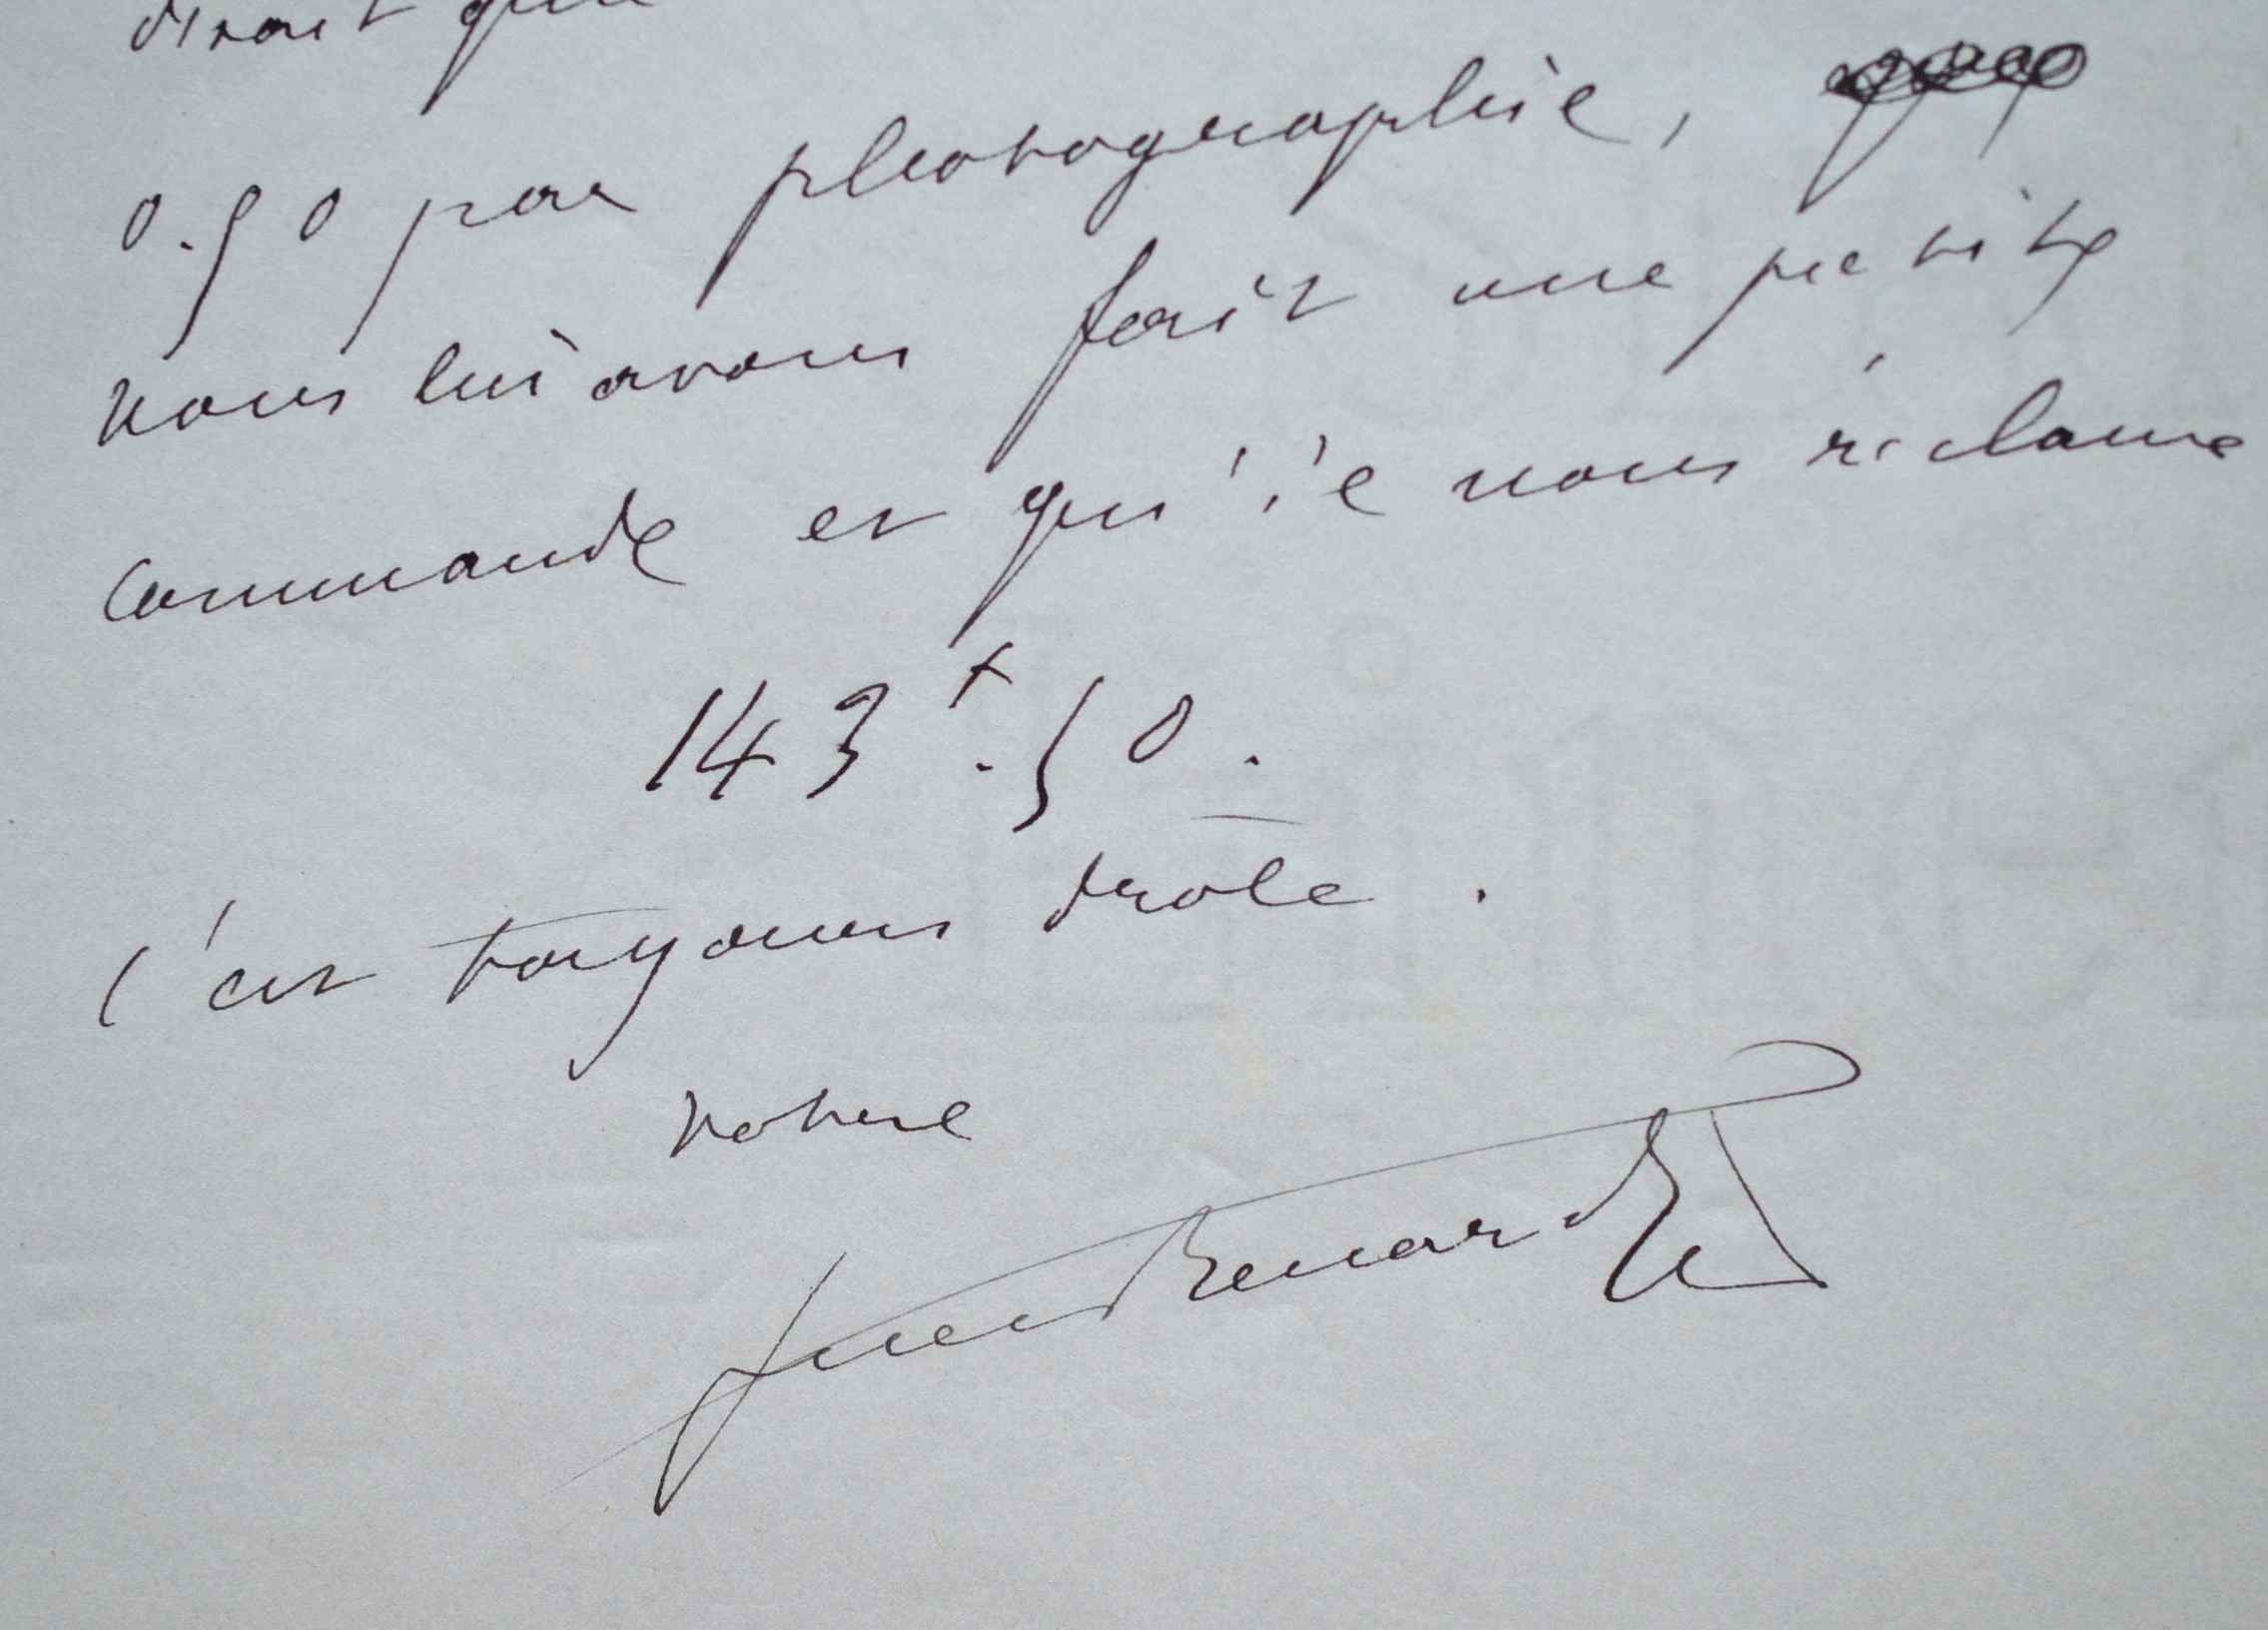 disait que
0.50 par photographie,
nous lui avons fait une petite
commande et qu'il nous réclame
143f.50.
C'est toujours drôle.
Votre
Jules Renard